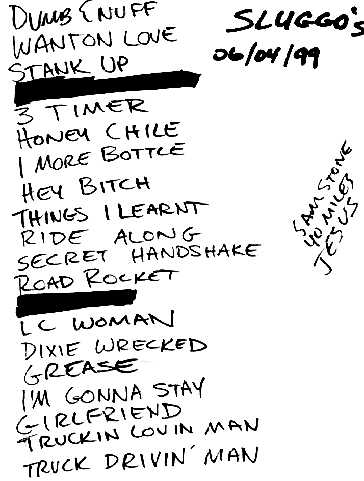 DUMB ENUFF
WANTON LOVE
STANK UP
3 TIMER
HONEY CHILE
1 MORE BOTTLE
HEY BITCH
THINGS I LEARNT
RIDE ALONG
SECRET HANDSHAKE
ROAD ROCKET
LC WOMAN
DIXIE WRECKED
GREASE
I'M GONNA STAY
GIRLFRIEND
TRUCKIN LOVIN MAN
TRUCK DRIVIN' MAN
SLUGGO'S
06/04/99
SAM STONE
40 MILES
JESUS